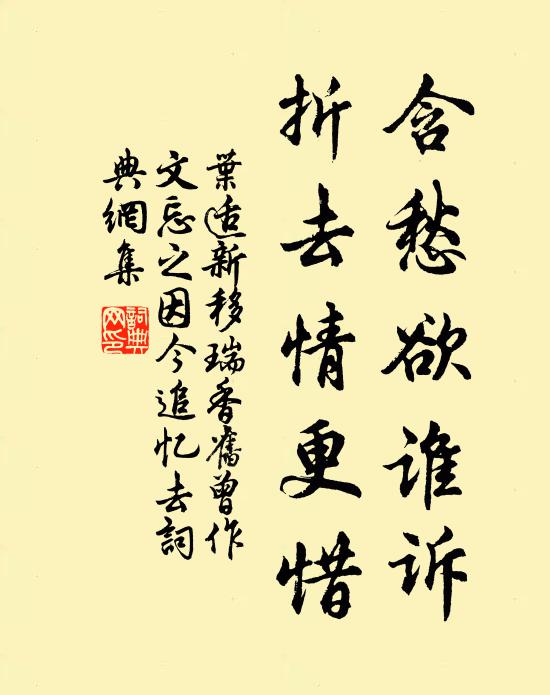 含愁欲谁诉
折去情更惜
葉适新移瑞香舊曾作
文忘之因今追忆去詞
典網集
詞典
网印